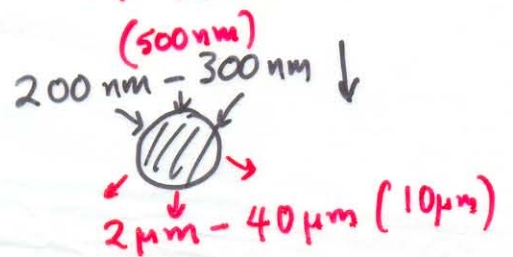 (500nm)
200 nm - 300 nm
2 μm - 40 μm (10μm)